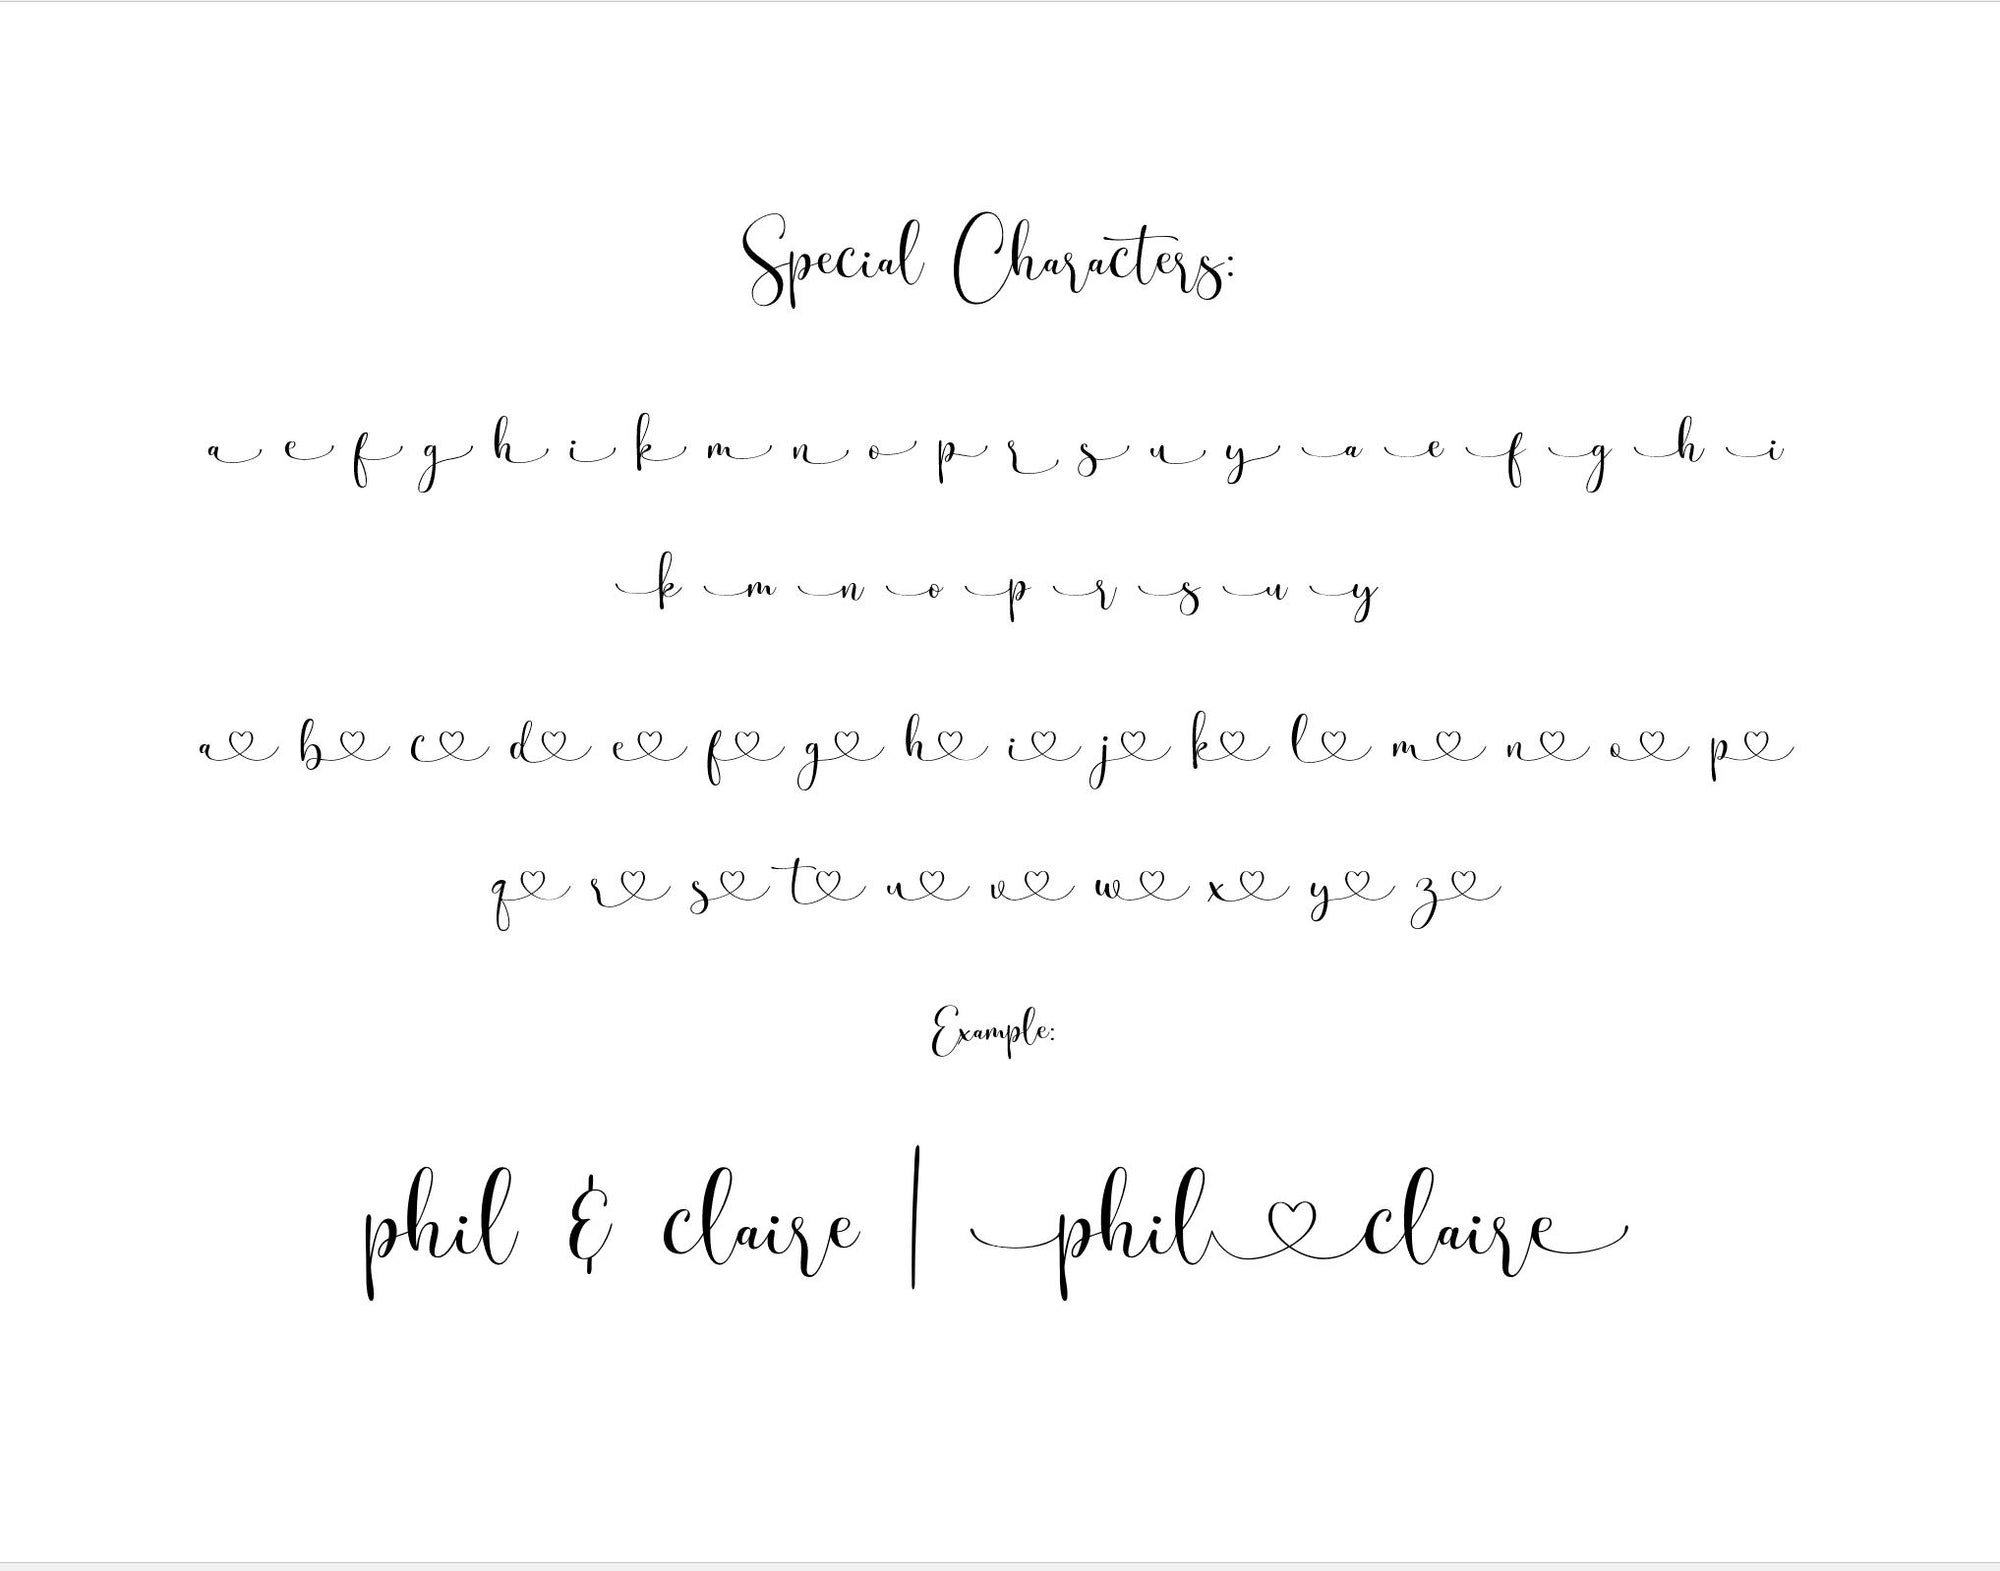 Special Characters:
a e f g h i k m n o p r s u y a e f g h i
k m n o p r s u y
a♡ b♡ c♡ d♡ e♡ f♡ g♡ h♡ i♡ j♡ k♡ l♡ m♡ n♡ o♡ p♡
q♡ r♡ s♡ t♡ u♡ v♡ w♡ x♡ y♡ z♡
Example:
phil & claire | phil♡claire